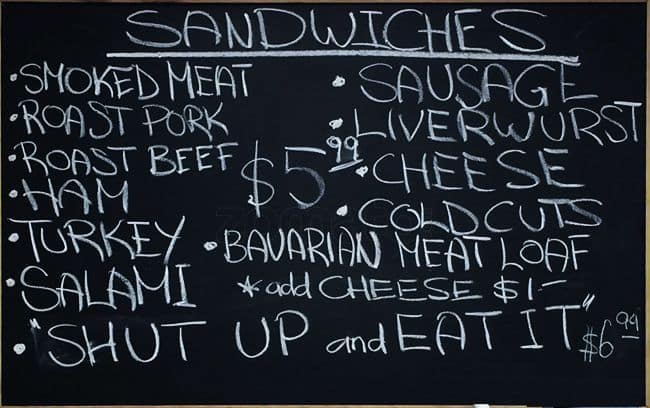 SANDWICHES
• SMOKED MEAT
• ROAST PORK
• ROAST BEEF
• HAM
• TURKEY
• SALAMI
$5.99
• SAUSAGE
• LIVERWURST
• CHEESE
• COLD CUTS
• BAVARIAN MEAT LOAF
* add CHEESE $1-
• "SHUT UP and EAT IT" $6.99